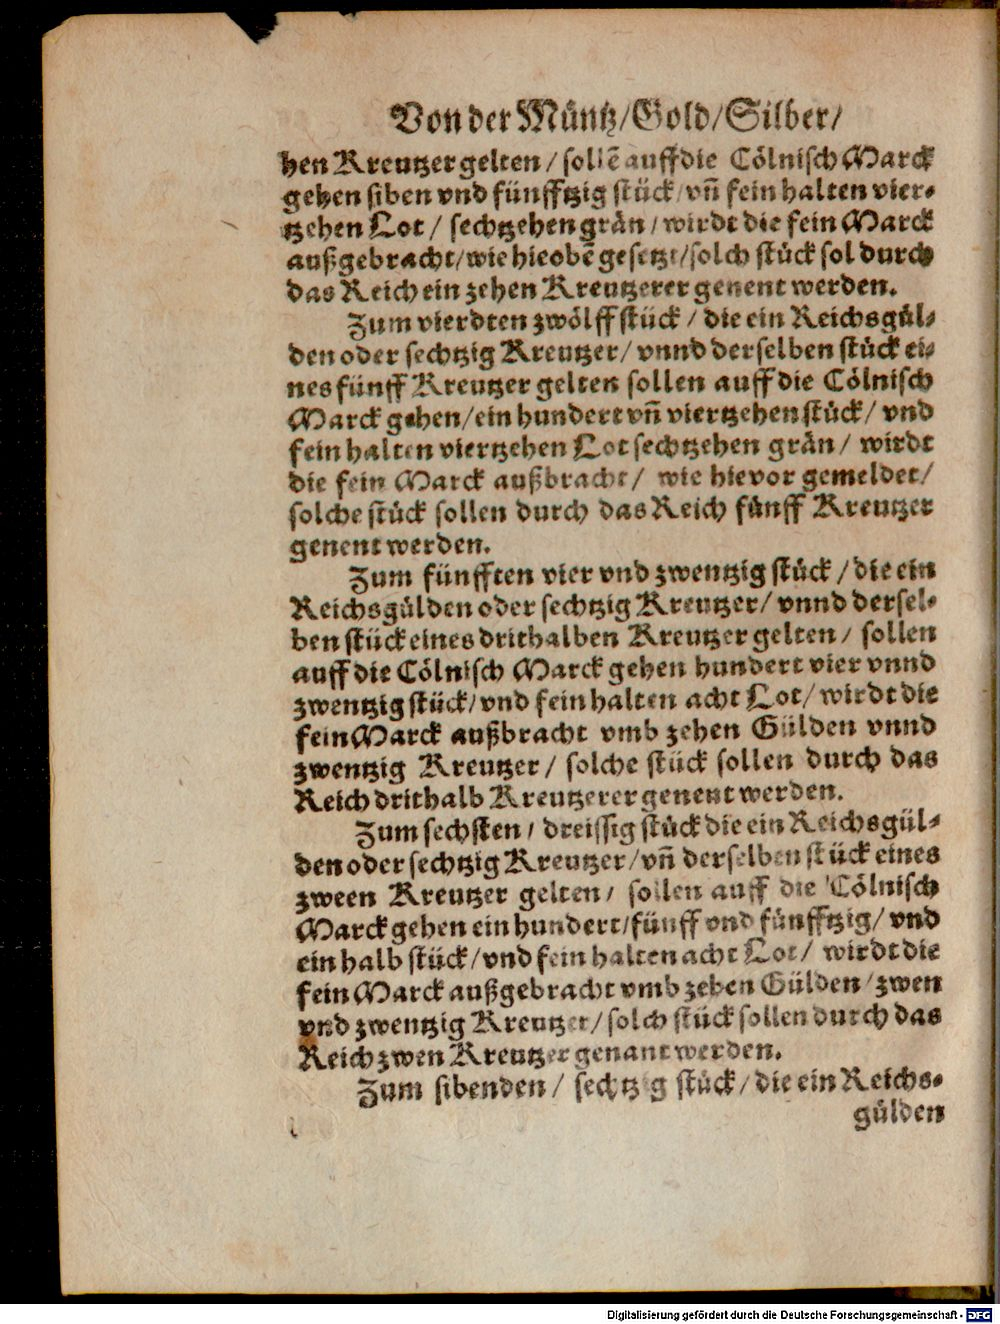 Von der Müntz/Gold/Silber/
hen Kreutzer gelten/ sollē auff die Cölnisch Marck
gehen siben vnd fünfftzig stück/ vñ fein halten vier-
tzehen Lot/ sechtzehen grän/ wirdt die fein Marck
außgebracht/ wie hieobē gesetzt/ solch stück sol durch
das Reich ein zehen Kreutzerer genent werden.
Zum vierdten zwölff stück/ die ein Reichsgül-
den oder sechtzig Kreutzer/ vnnd derselben stück ei-
nes fünff Kreutzer gelten sollen auff die Cölnisch
Marck gehen/ ein hundert vñ viertzehen stück/ vnd
fein halten viertzehen Lot sechtzehen grän/ wirdt
die fein Marck außbracht/ wie hievor gemeldet/
solche stück sollen durch das Reich fünff Kreutzer
genent werden.
Zum fünfften vier vnd zwentzig stück/ die ein
Reichsgülden oder sechtzig Kreutzer/ vnnd dersel-
ben stück eines drithalben Kreutzer gelten/ sollen
auff die Cölnisch Marck gehen hundert vier vnnd
zwentzig stück/ vnd fein halten acht Lot/ wirdt die
fein Marck außbracht vmb zehen Gülden vnnd
zwentzig Kreutzer/ solche stück sollen durch das
Reich drithalb Kreutzerer genent werden.
Zum sechsten/ dreissig stück die ein Reichsgül-
den oder sechtzig Kreutzer/ vñ derselben stück eines
zween Kreutzer gelten/ sollen auff die Cölnisch
Marck gehen ein hundert/ fünff vnd fünfftzig/ vnd
ein halb stück/ vnd fein halten acht Lot/ wirdt die
fein Marck außgebracht vmb zehen Gülden/ zwen
vnd zwentzig Kreutzer/ solch stück sollen durch das
Reich zwen Kreutzer genant werden.
Zum sibenden/ sechtzig stück/ die ein Reichs-
gülden
Digitalisierung gefördert durch die Deutsche Forschungsgemeinschaft - DFG